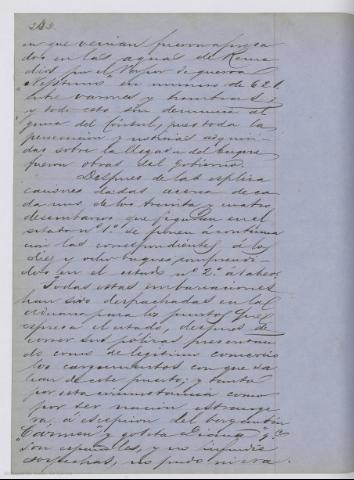 243.
en que venian fueron apresa
dos en las aguas de Reme
dios por el Vapor de guerra
en numero de 621.
entre varones y hembras;
y todo esto sin denuncia al
guna del Consul, pues toda la
persecucion y noticias adquiri
das sobre la llegada del buque
fueron obras del Gobierno.
Despues de las esplica
ciones dadas acerca de ca
da uno de los treinta y cuatro
desembarcos que figuran en el
estado nº 1º se ponen á continua
cion las correspondientes á los
diez y ocho buques comprendi
dos en el estado nº 2º
Todas estas embarcaciones
han sido despachadas en lo
ordinario para los puntos que
espresa el estado, despues de
correr sus polizas presentan
do como de legitimo comercio
los cargamentos con que sa
lian de este puerto; y tanto
por esta circunstancia como
por ser nacion estrange
ra, á escepcion del bergantin
"Carmen" y goleta
son españoles, y no infundir
sospechas, no pudo